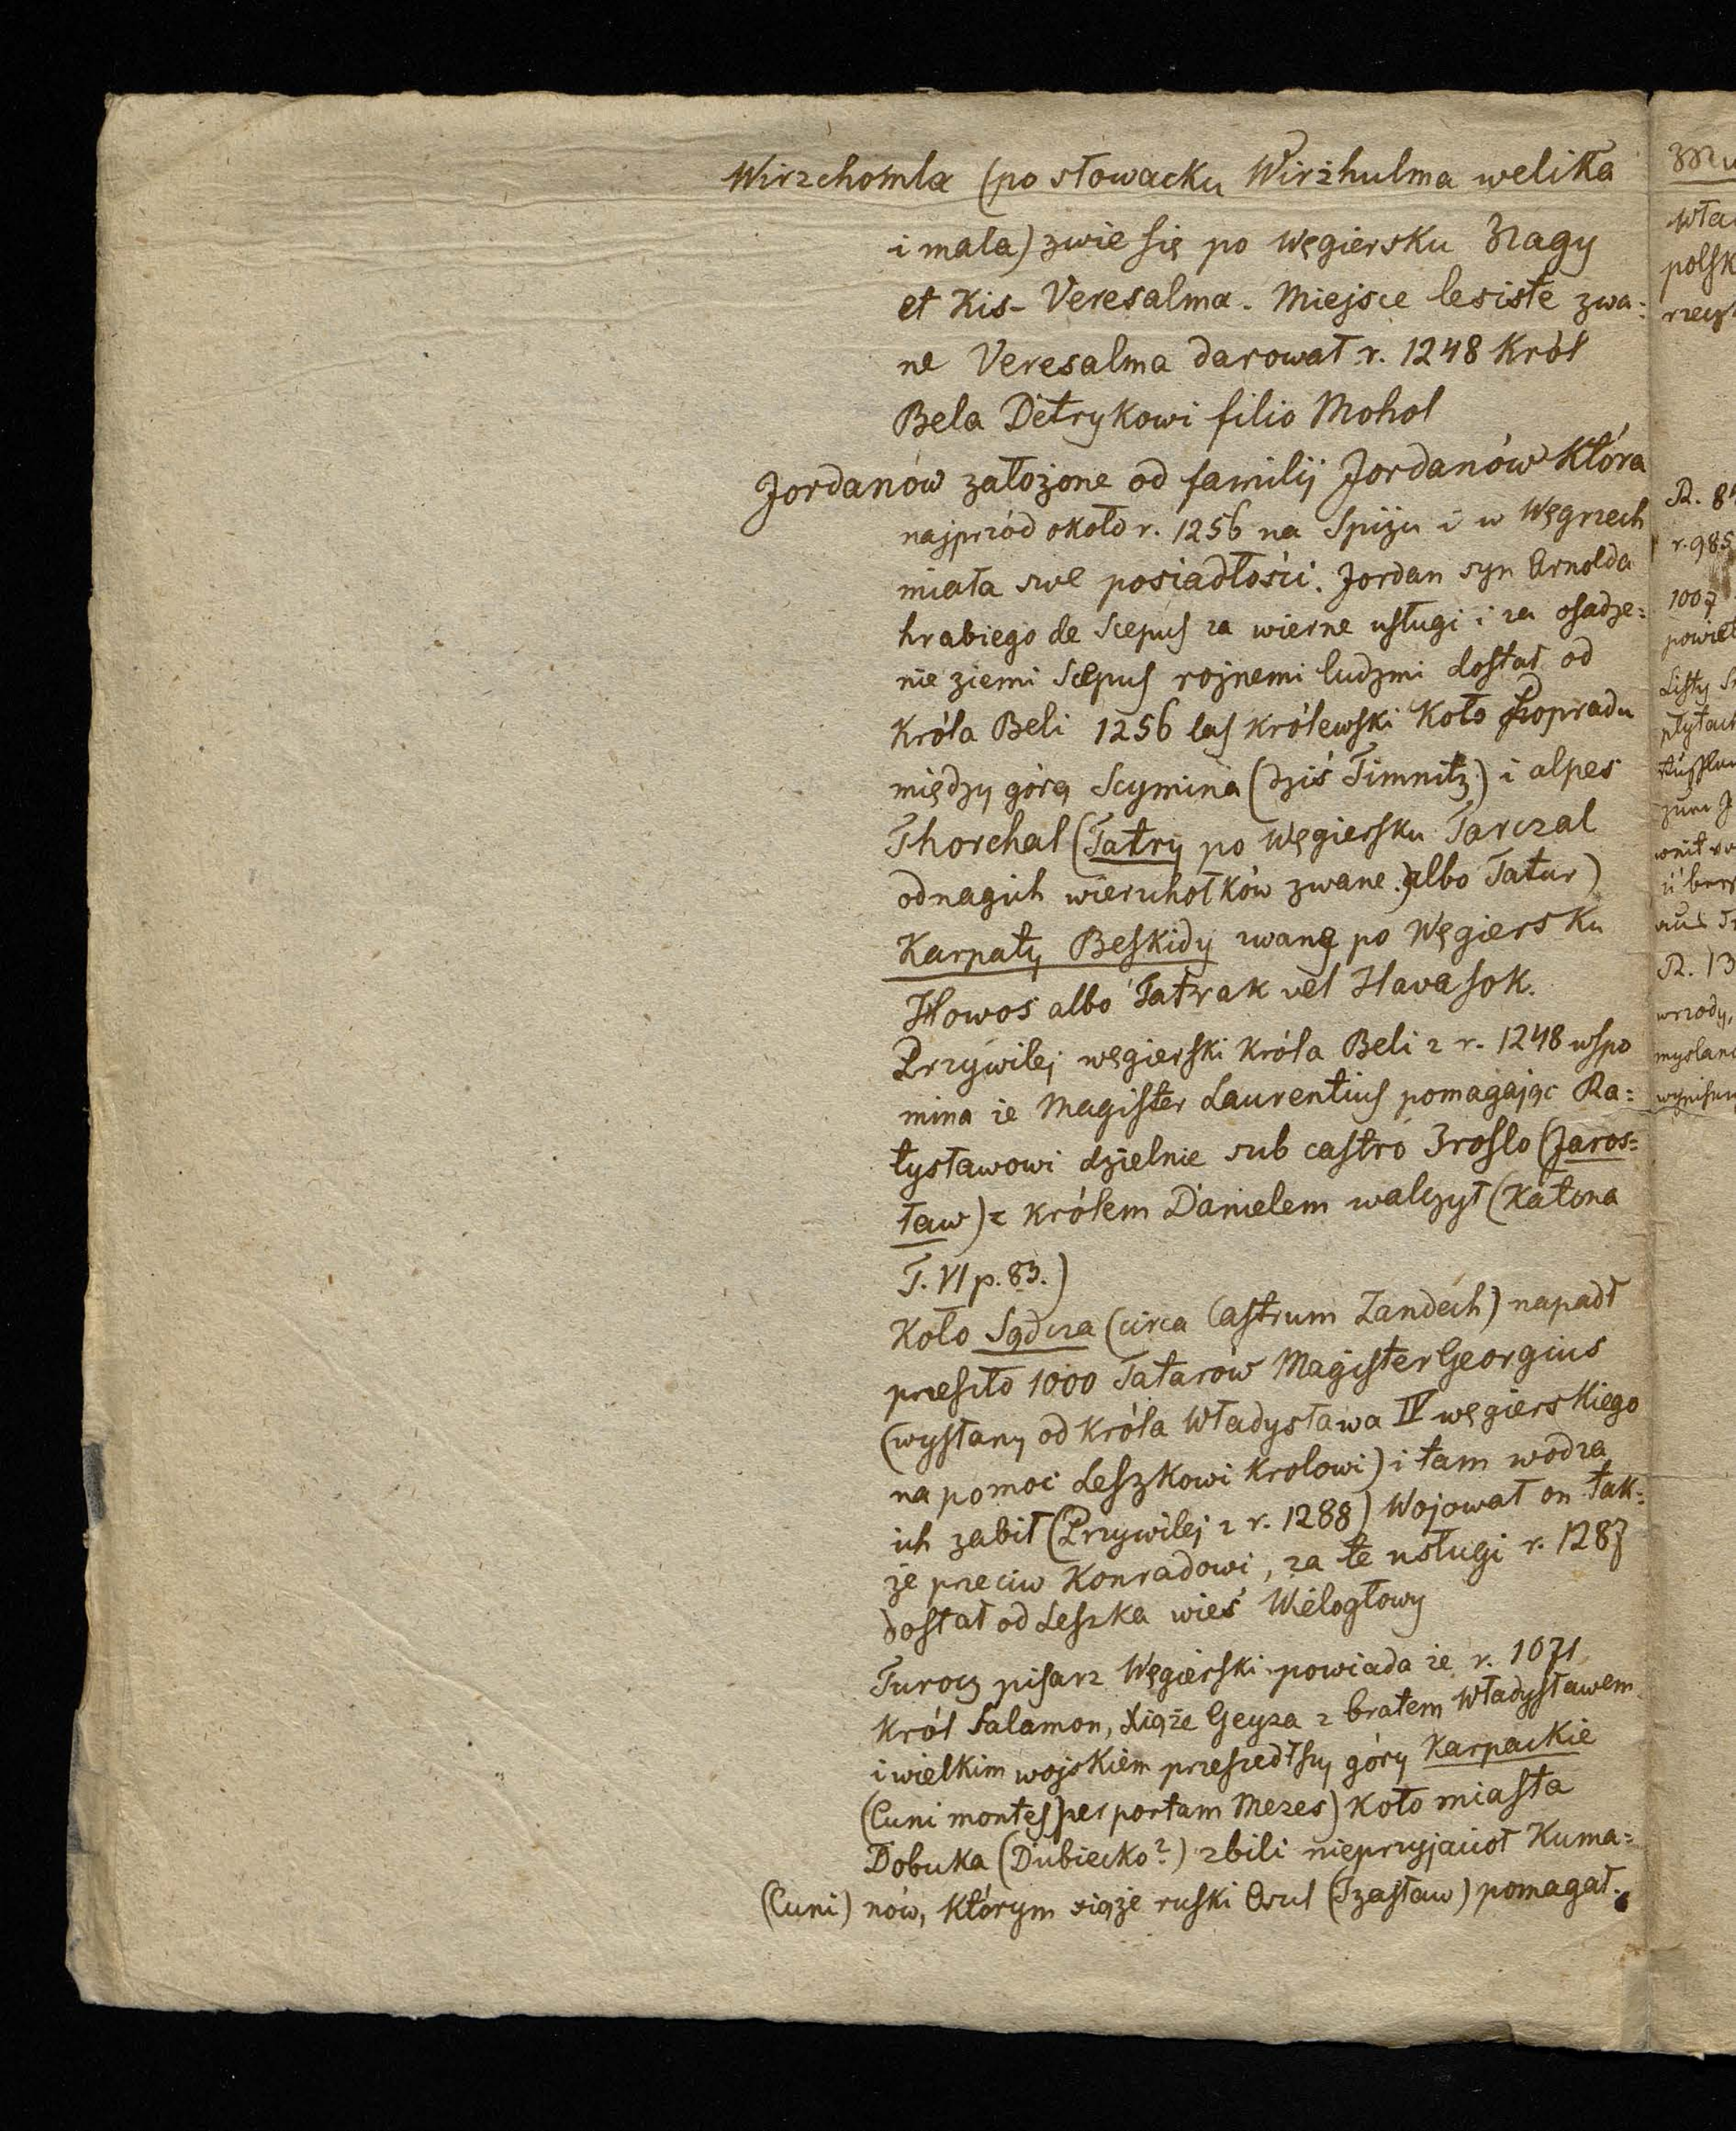 Wirzchomla (po słowacku Wirżhulma welika
i mala) zwie się po węgiersku Nagy
et Kis-Veresalma. Miejsce lesiste zwa:
ne Veresalma darował r. 1248 Król
Bela Detrykowi filio Mohol
Jordanów założone od familij Jordanów Która
najprzód około r. 1256 na Spiżu i w Węgrzech
miała swe posiadłości. Jordan syn Arnolda
hrabiego de Scepus za wierne usługi i za osadze:
nie ziemi Scepus rożnemi ludzmi dostał od
Króla Beli 1256 las królewski Koło Popradu
między górą Scymina (dziś Timnitz) i alpes
Thorchal (Tatry po Węgiersku Tarczal
od nagich wierzchołków zwane.) albo Tatur)
Karpaty, Beskidy zwane po Węgiersku
Howos albo Tatrak vel Havasok.
Przywilej węgierski Króla Beli z r. 1248 wspo
mina że Magister Laurentius pomagając Ra:
tysławowi dzielnie sub castro Iroslo (Jaros:
ław) z królem Danielem walczył (Katona
T. VI p. 83.)
Koło Sądcza (circa Castrum Zandech) napadł
przeszło 1000 Tatarów Magister Georgius
(wysłany od Króla Władysława IV węgierskiego
na pomoc Leszkowi Krolowi) i tam wodza
ich zabił (Przywilej z r. 1288) Wojował on tak:
że przeciw Konradowi, za te usługi r. 1287
dostał od Leszka wieś Wielogłowy
Turocz pisarz Węgierski powiada że r. 1071
Król Salamon, Xiąże Geyza z bratem Władysławem
i wielkim wojskiem przeszedłszy góry Karpackie
(Cuni montes) per portam Mezes) Koło miasta
Dobuka (Dubiecko?) zbili nieprzyjaciół Kuma:
(Cuni) nów, Którym xiąże ruski Osul (Izasław) pomagał.
Wła
polsk
R. 8
r. 985
1007
powiet
Listy
R. 13
wrzody,